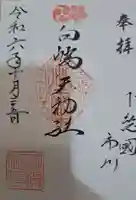 奉拝
下総國
市川
白幡天神社
令和六年十月三日